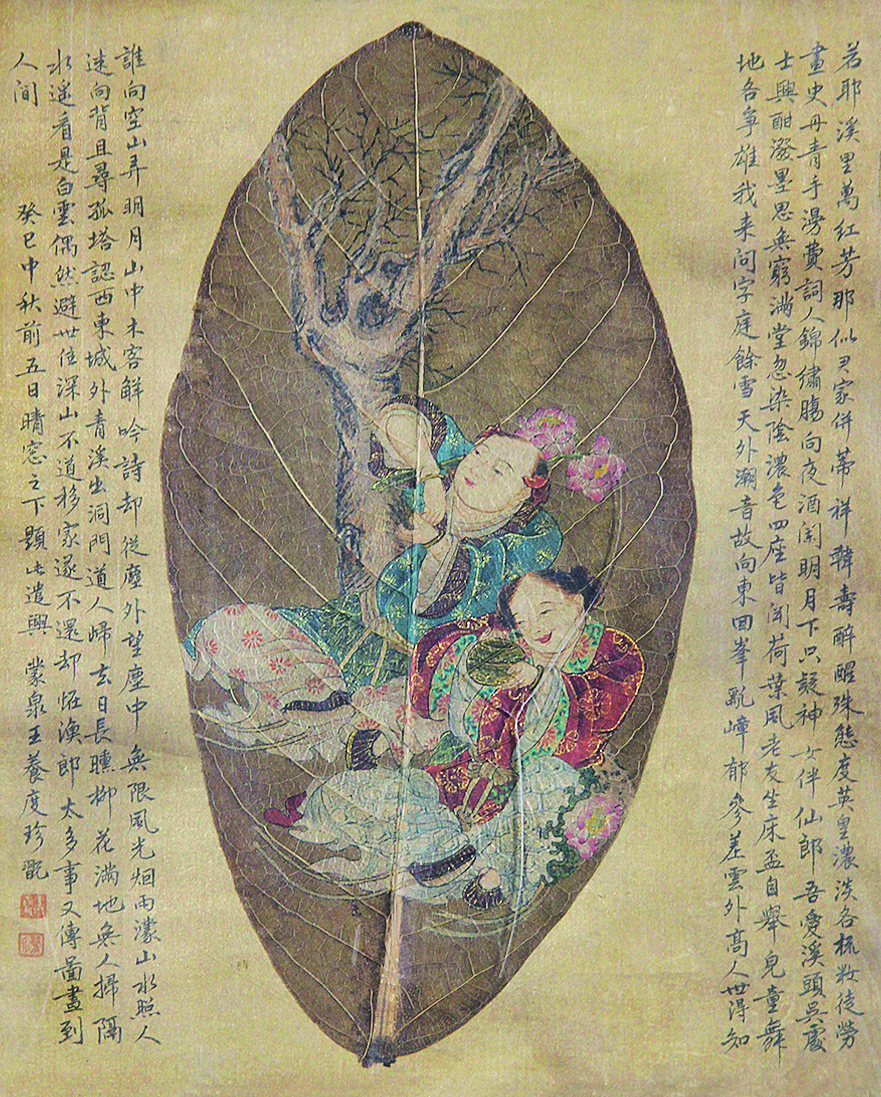 若耶溪里萬紅芳那似尹家併蒂祥韓壽醉醒殊態度英皇濃淡各梳妝徒勞
畫史丹青手漫費詞人錦繡腸向夜酒闌明月下只疑神女伴仙郎吾愛溪頭吳處
士興酣潑墨思無窮滿堂忽染陰濃色四座皆聞荷葉風老友生床盃自舉兒童舞
地各爭雄我来問字庭餘雪天外潮音故向東回峯亂嶂郁參差雲外高人世得知
誰向空山弄明月山中木客鮮吟詩却從塵外望塵中無限風光烟雨濛山水照人
迷向背且尋孤塔認西東城外青溪出洞門道人歸去日長曛柳花滿地無人掃隔
水遥看是白雲偶然避世住深山不道移家遂不還却怪漁郎太多事又傳圖畫到
人間 癸巳中秋前五日晴窓之下題此遣興 蒙泉王養度珍翫